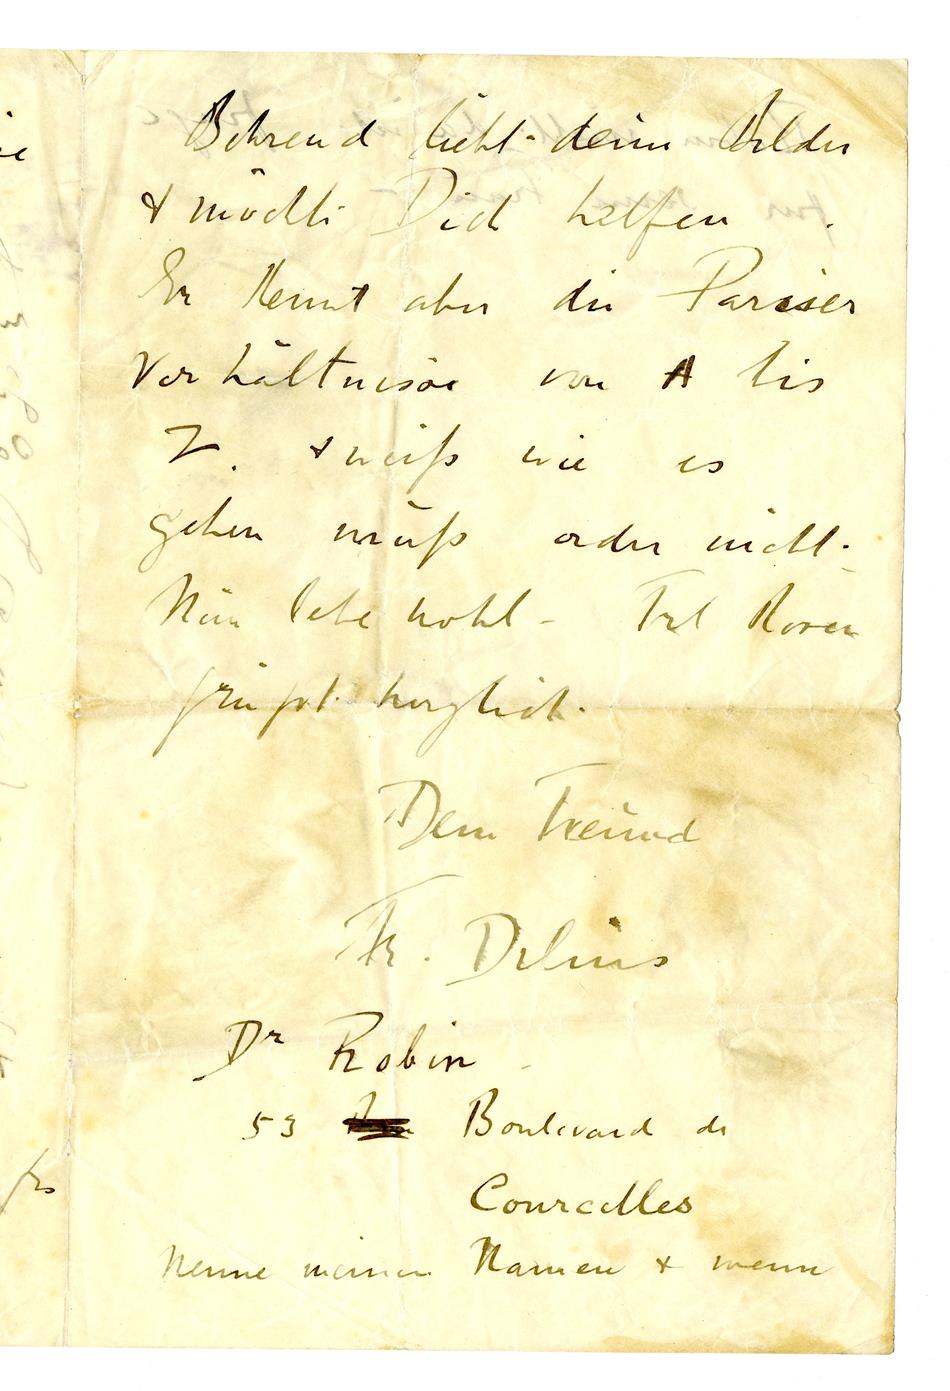 Behrend liebt deine Bilder
& möchte Dich helfen.
Er kennt aber die Pariser
Verhältnisse von A bis
Z. & weiß wie es
gehen muß oder nicht.
Nun lebe wohl – Frl Rosen
grüßt herzlich.
Dein Freund
Fr. Delius
Dr Robin
53 Boulevard de
Courcelles
Nenne meinen Namen & wenn